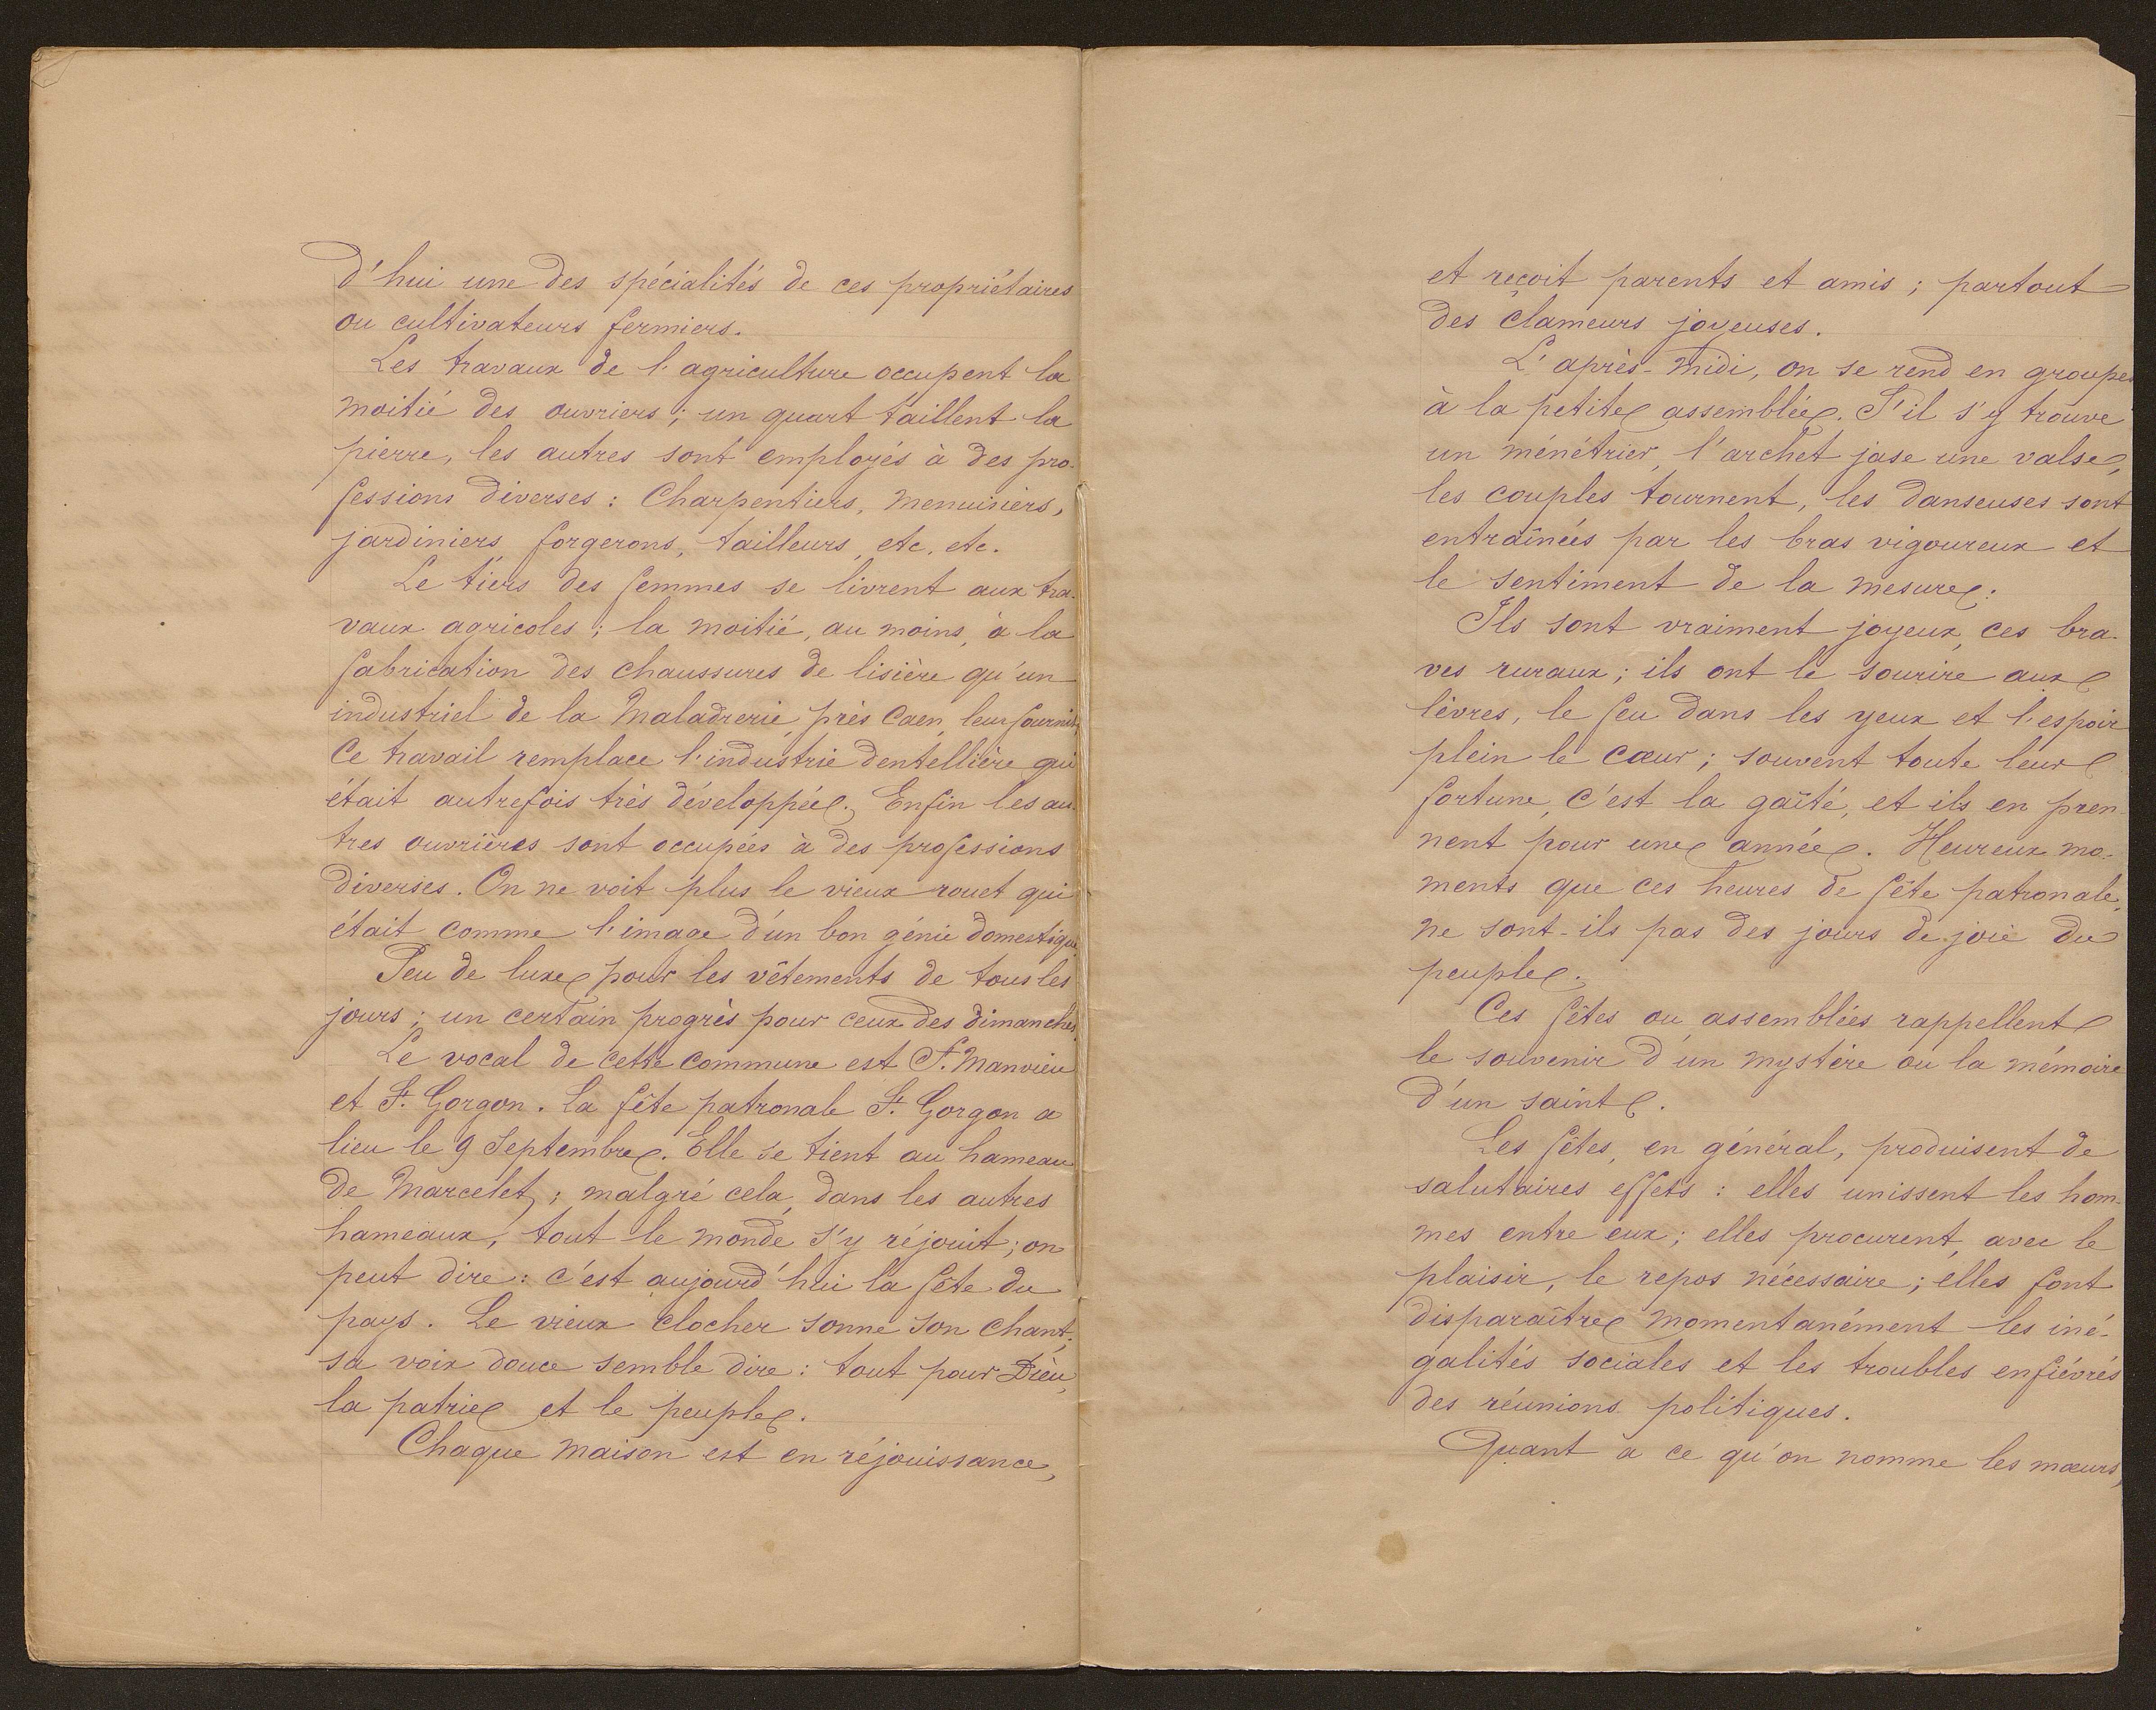 d'hui une des spécialités de ces propriétaires
ou cultivateurs fermiers.
Les travaux de l'agriculture occupent la
moitié des ouvriers ; un quart taillent la
pierre, les autres sont employés à des pro-
fessions diverses : Charpentiers, menuisiers,
jardiniers, forgerons, tailleurs, etc. etc.
Le tiers des femmes se livrent aux tra-
vaux agricoles ; la moitié, au moins, à la
fabrication des chaussures de lisière qu'un
industriel de la Maladrerie, près Caen, leur fournit.
Ce travail remplace l'industrie dentellière qui
était autrefois très développée. Enfin les au-
tres ouvrières sont occupées à des professions
diverses. On ne voit plus le vieux rouet qui
était comme l'image d'un bon génie domestique.
Peu de luxe pour les vêtements de tous les
jours ; un certain progrès pour ceux des dimanches.
Le vocal de cette commune est St. Manvieu
et St. Gorgon. La fête patronale St. Gorgon a
lieu le 9 Septembre. Elle se tient au hameau
de Marcelet ; malgré cela, dans les autres
hameaux, tout le monde s'y réjouit ; on
peut dire : c'est aujourd'hui la fête du
pays. Le vieux clocher sonne son chant ;
sa voix douce semble dire : tout pour Dieu,
la patrie et le peuple.
Chaque maison est en réjouissance,
et reçoit parents et amis ; partout
des clameurs joyeuses.
L'après-midi, on se rend en groupes
à la petite assemblée. S'il s'y trouve
un ménétrier, l'archet jase une valse,
les couples tournent, les danseuses sont
entraînées par les bras vigoureux et
le sentiment de la mesure.
Ils sont vraiment joyeux, ces bra-
ves ruraux ; ils ont le sourire aux
lèvres, le feu dans les yeux et l'espoir
plein le cœur ; souvent toute leur
fortune, c'est la gaîté, et ils en pren-
nent pour une année. Heureux mo-
ments que ces heures de fête patronale,
ne sont-ils pas des jours de joie du
peuple.
Ces fêtes ou assemblées rappellent
le souvenir d'un mystère ou la mémoire
d'un saint.
Les fêtes, en général, produisent de
salutaires effets : elles unissent les hom-
mes entre eux ; elles procurent, avec le
plaisir, le repos nécessaire ; elles font
disparaître momentanément les iné-
galités sociales et les troubles enfiévrés
des réunions politiques.
Quant à ce qu'on nomme les mœurs,